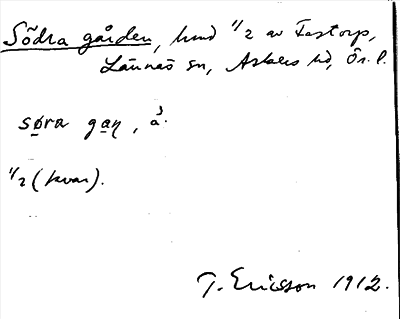 Södra gården, hmd 1/2 av Fastorp,
Lännäs sn, Askers hd, Ör. l.
søra gaņ, å.
1/2 (kvar).
T. Ericsson 1912.